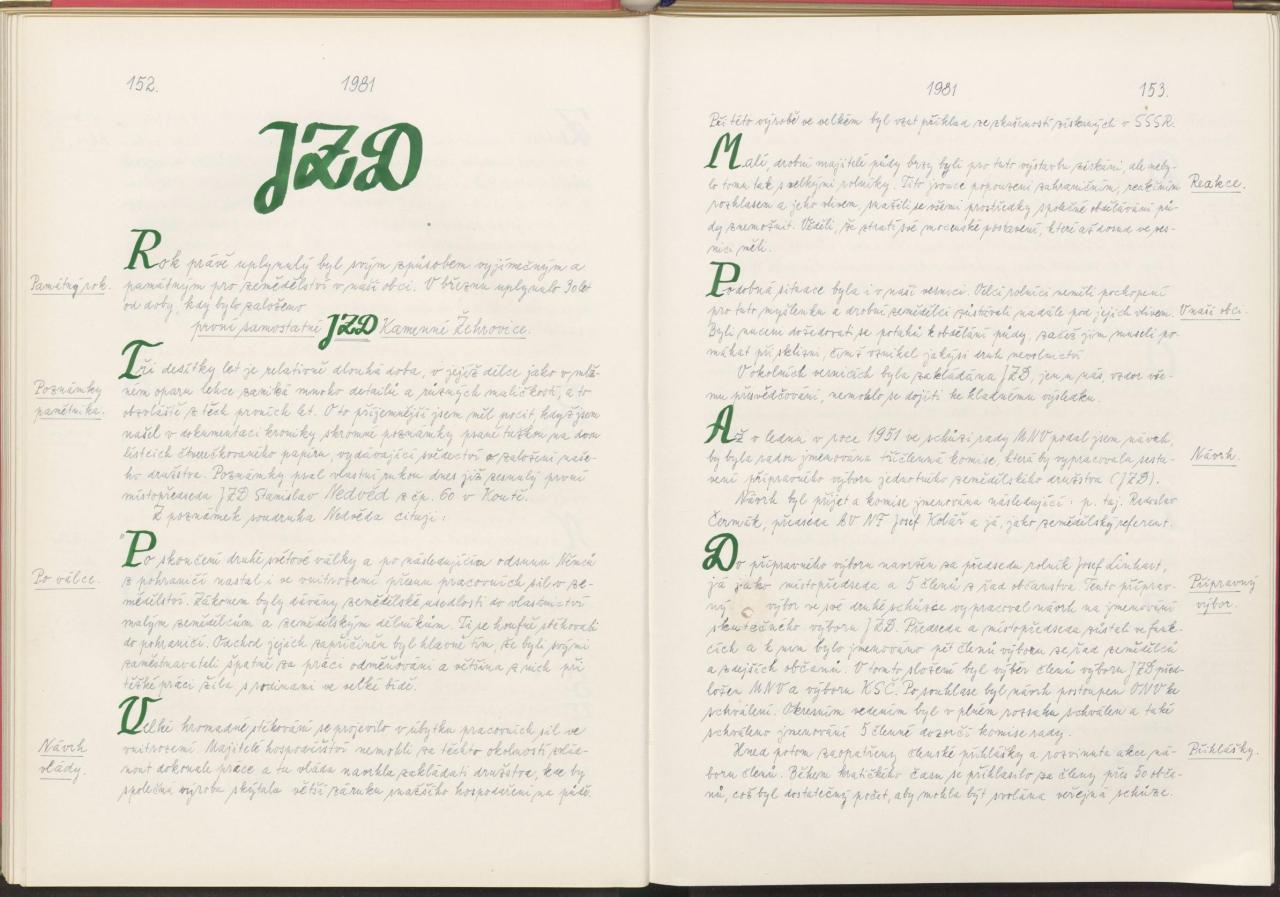 152.
1981
JZD
Památný rok.
Rok právě uplynulý byl svým způsobem vyjímečným a
památným pro zemědělství v naší obci. V březnu uplynulo 30 let
od doby, kdy bylo založeno
první samostatní JZD Kamenné Žehrovice.
Poznámky
pamětníka.
Tři desítky let je relativní dlouhá doba, v jejíž délce jako v mlž-
ném oparu lehce zaniká mnoho detailů a různých maličkostí, a to
obzvláště z těch prvních let. O to příjemnější jsem měl pocit, když jsem
našel v dokumentaci kroniky skromné poznámky psané tužkou na dvou
lístcích čtverečkovaného papíru, vydávající svědectví o založení naše-
ho družstva. Poznámky psal vlastní rukou dnes již zesnulý první
místopředseda JZD Stanislav Nedvěd z čp. 60 v Koutě.
Z poznámek soudruha Nedvěda cituji:
Po válce.
"Po skončení druhé světové války a po následujícím odsunu Němců
z pohraničí nastal i ve vnitrozemí přesun pracovních sil v ze-
mědělství. Zákonem byly dávány zemědělské usedlosti do vlastnictví
malým zemědělcům a zemědělským dělníkům. Ti se houfně stěhovali
do pohraničí. Odchod jejich zapříčiněn byl hlavně tím, že byli svými
zaměstnavateli špatně za práci odměňováni a většina z nich při
těžké práci žila s rodinami ve velké bídě.
Návrh
vlády.
Velké hromadné stěhování se projevilo v úbytku pracovních sil ve
vnitrozemí. Majitelé hospodářství nemohli za těchto okolností zvlád-
nout dokonale práce a tu vláda navrhla zakládati družstva, kde by
společná výroba skýtala větší záruku snažšího hospodaření na půdě.
1981
153.
Při této výrobě ve velkém byl vzat příklad ze zkušeností získaných v SSSR.
Reakce.
Malí, drobní majitelé půdy brzy byli pro tuto výstavbu získáni, ale neby-
lo tomu tak s velkými rolníky. Tito jsouce popouzeni zahraničním, reakčním
rozhlasem a jeho vlivem, snažili se všemi prostředky společné obdělávání pů-
dy znemožnit. Věděli, že ztratí své mocenské postavení, které až dosud ve ves-
nici měli.
V naší obci.
Podobná situace byla i v naší vesnici. Velcí rolníci neměli pochopení
pro tuto myšlenku a drobní zemědělci zůstávali nadále pod jejich vlivem.
Byli nuceni dožadovati se potahů k obdělání půdy, začež jim museli po-
máhat při sklizni, čímž vznikal jakýsi druh nevolnictví.
V okolních vesnicích byla zakládána JZD, jen u nás, vzdor vše-
mu přesvědčování, nemohlo se dojíti ke kladnému výsledku.
Návrh.
Až v lednu v roce 1951 ve schůzi rady MNV podal jsem návrh,
by byla radou jmenována tříčlenná komise, která by vypracovala sesta-
vení přípravného výboru jednotního zemědělského družstva (JZD).
Návrh byl přijet a komise jmenována následující: p. taj. Rostislav
Čermák, předseda AV NF Josef Kolář a já, jako zemědělský referent.
Přípravný
výbor.
Do přípravného výboru navržen za předsedu rolník Josef Linhart,
já jako místopředseda a 5 členů z řad občanstva. Tento příprav-
ný výbor ve své druhé schůzce vypracoval návrh na jmenování
skutečného výboru JZD. Předseda a místopředseda zůstali ve funk-
cích a k nim bylo jmenováno pět členů výboru ze řad zemědělců
a zdejších občanů. V tomto složení byl výběr členů výboru JZD před-
ložen MNV a výboru KSČ. Po souhlase byl návrh postoupen ONV ke
schválení. Okresním vedením byl v plném rozsahu schválen a také
schváleno jmenování 5 členné dozorčí komise rady.
Přihlášky.
Hned potom zaopatřeny členské přihlášky a rozvinuta akce ná-
boru členů. Během kratičkého času se přihlásilo za členy přes 50 obča-
nů, což byl dostatečný počet, aby mohla být svolána veřejná schůze.